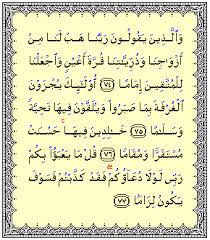 وَالَّذِينَ يَقُولُونَ رَبَّنَا هَبْ لَنَا مِنْ
أَزْوَاجِنَا وَذُرِّيَّاتِنَا قُرَّةَ أَعْيُنٍ وَاجْعَلْنَا
لِلْمُتَّقِينَ إِمَامًا ﴿٧٤﴾ أُوْلَٰئِكَ يُجْزَوْنَ
الْغُرْفَةَ بِمَا صَبَرُوا وَيُلَقَّوْنَ فِيهَا تَحِيَّةً
وَسَلَامًا ﴿٧٥﴾ خَالِدِينَ فِيهَا حَسُنَتْ
مُسْتَقَرًّا وَمُقَامًا ﴿٧٦﴾ قُلْ مَا يَعْبَؤُا بِكُمْ
رَبِّي لَوْلَا دُعَاؤُكُمْ فَقَدْ كَذَّبْتُمْ فَسَوْفَ
يَكُونُ لِزَامًا ﴿٧٧﴾